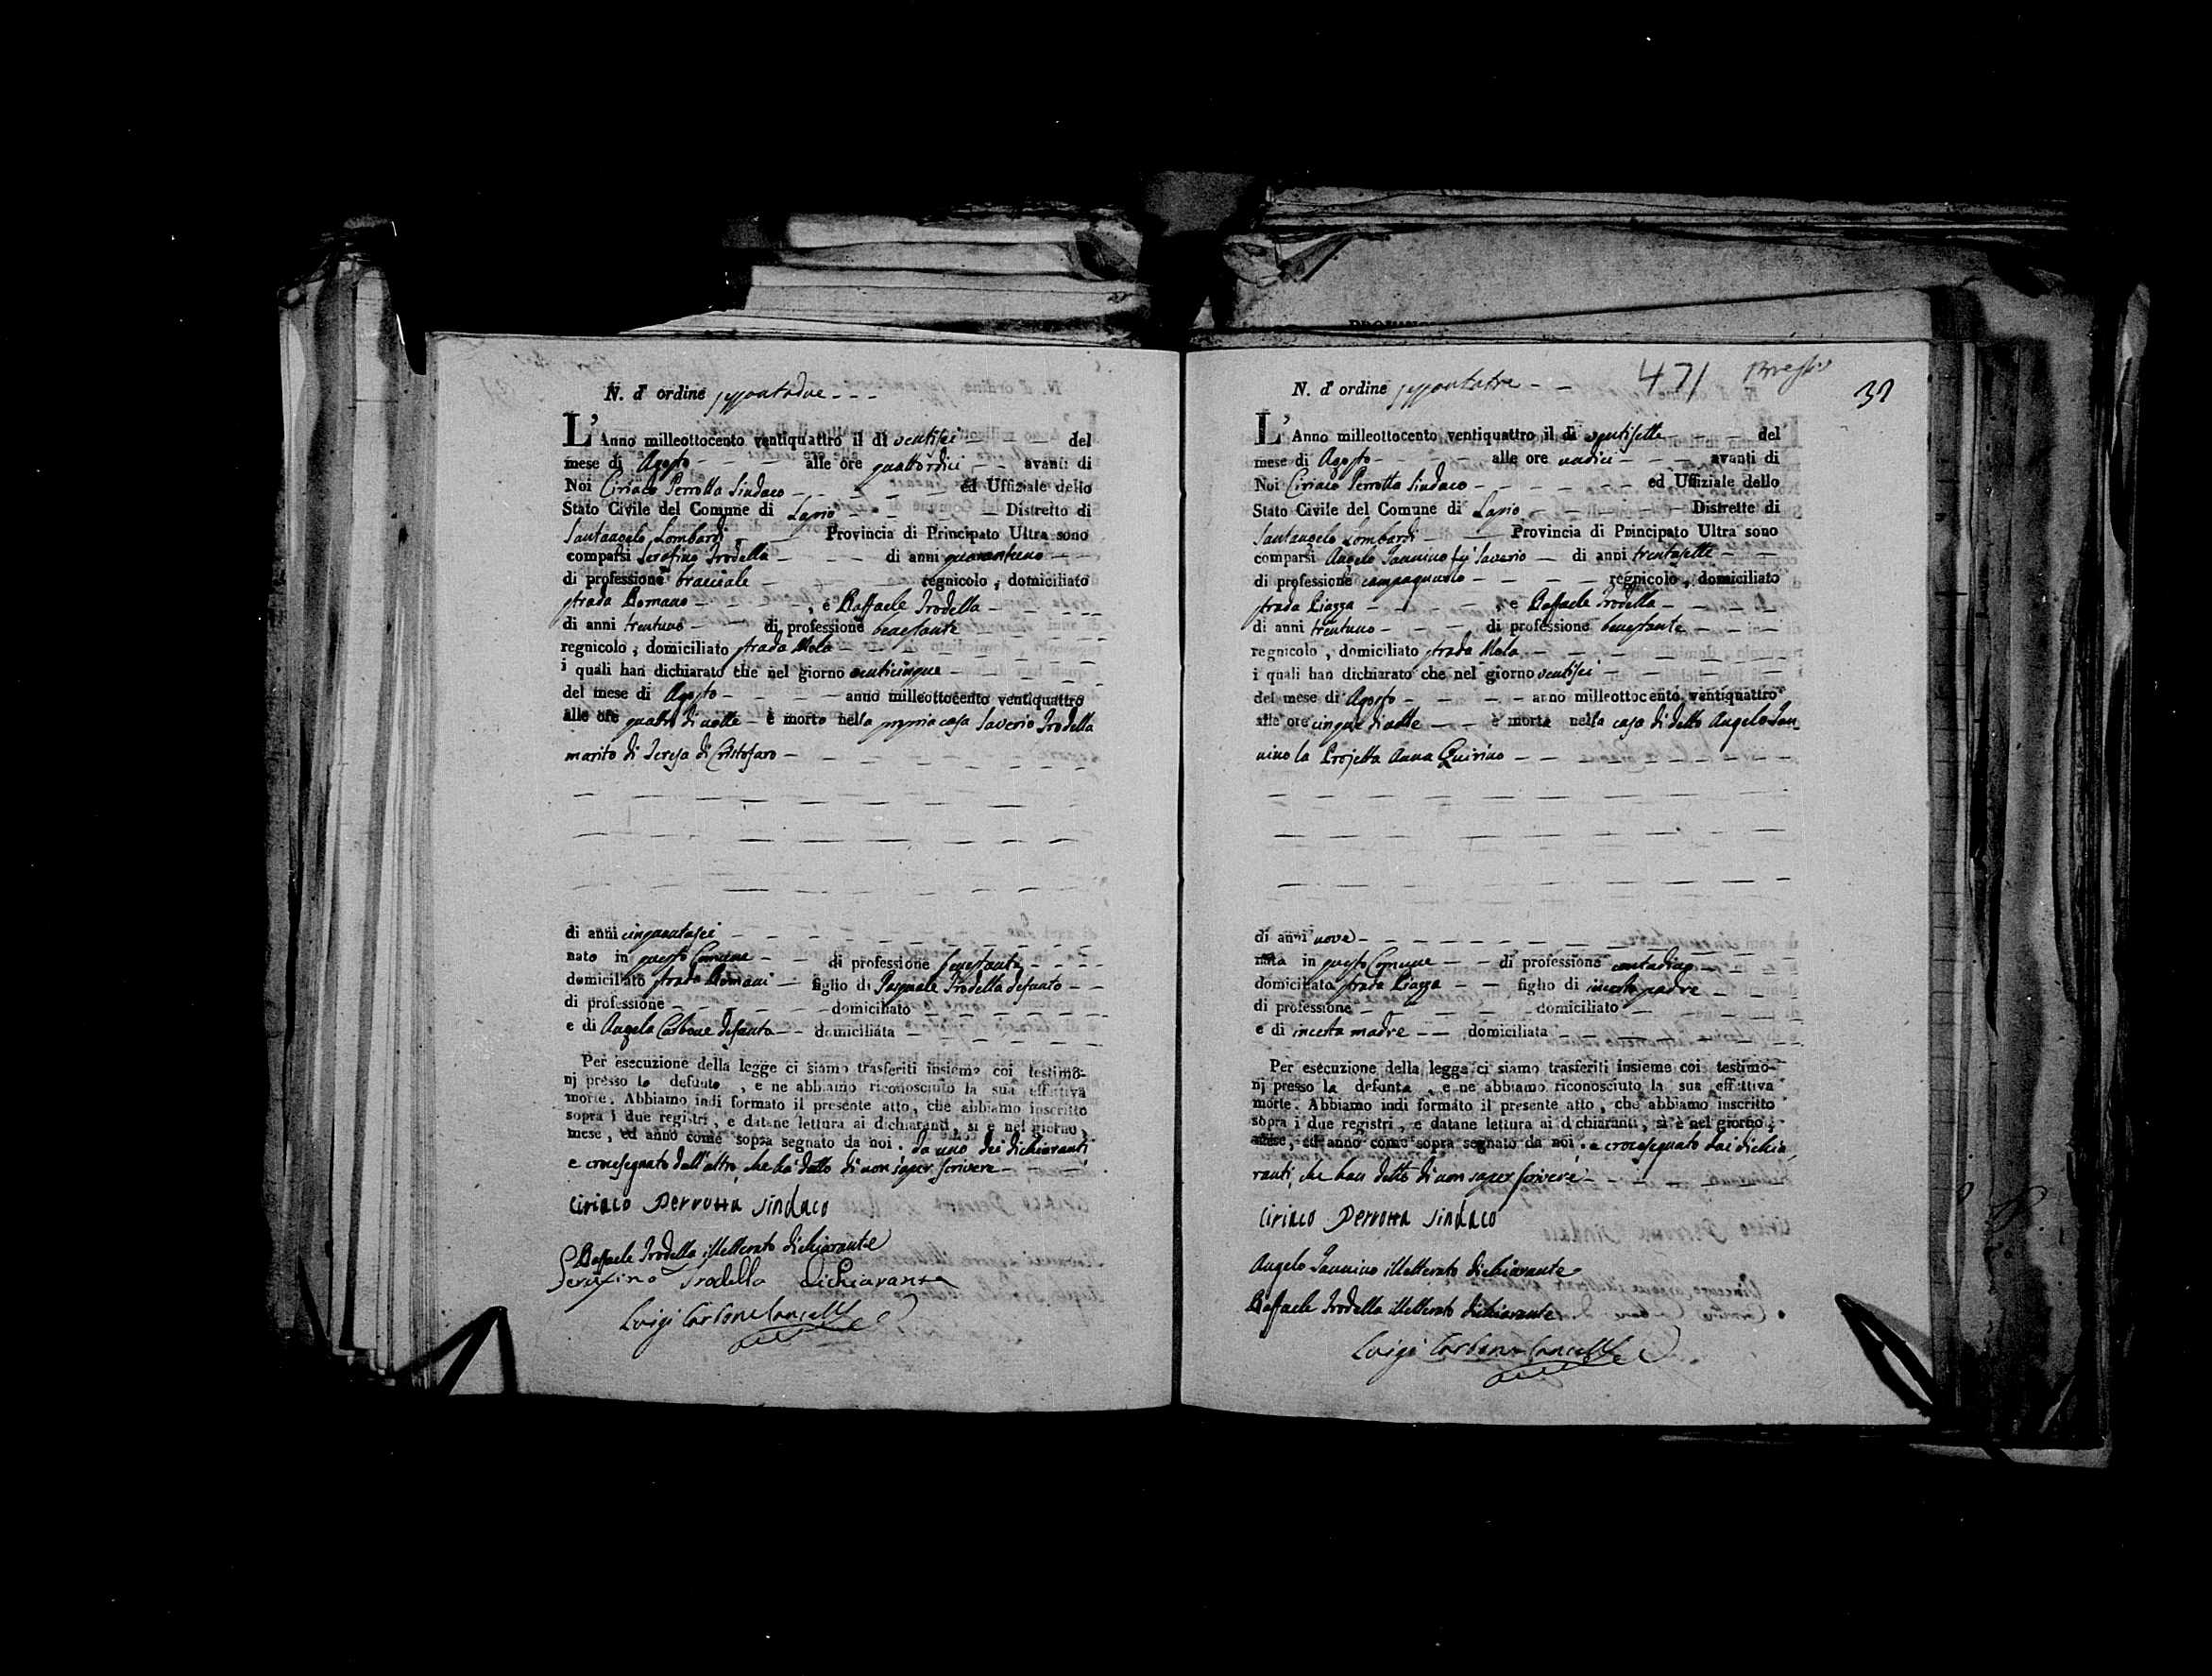 N. d' ordine settantadue
L' Anno milleottocento ventiquattro il dì ventisei del
mese di Agosto alle ore quattordici avanti di
Noi Ciriaco Perrotta Sindaco ed Uffiziale dello
Stato Civile del Comune di Lapio Distretto di
Santangelo Lombardi Provincia di Principato Ultra sono
comparsi Serafino Trodella di anni quarantuno
di professione bracciale regnicolo, domiciliato
strada Romano, e Raffaele Trodella
di anni trentuno di professione benestante
regnicolo, domiciliato strada Mela
i quali han dichiarato che nel giorno venticinque
del mese di Agosto anno milleottocento ventiquattro
alle ore quatro di notte è morto nella propria casa Saverio Trodella
marito di Teresa di Cristofaro
di anni cinquantasei
nato in questo Comune di professione benestante
domiciliato strada Romani figlio di Pasquale Trodella defunto
di professione domiciliato
e di Angela Carbone defunta domiciliata
Per esecuzione della legge ci siamo trasferiti insieme coi testimo-
nj presso lo defunto, e ne abbiamo riconosciuto la sua effettiva
morte. Abbiamo indi formato il presente atto, che abbiamo inscritto
sopra i due registri, e datane lettura ai dichiaranti, si è nel giorno,
mese, ed anno come sopra segnato da noi. da uno dei dichiaranti
e crocesegnato dall'altro, che ha detto di non saper scrivere
Ciriaco Perrotta Sindaco
Raffaele Trodella illetterato dichiarante
Serafino Trodella dichiarante
Luigi Carbone Cancell
N. d' ordine settantatre
471
32
L' Anno milleottocento ventiquattro il dì ventisette del
mese di Agosto alle ore undici avanti di
Noi Ciriaco Perrotta Sindaco ed Uffiziale dello
Stato Civile del Comune di Lapio Distretto di
Santangelo Lombardi Provincia di Principato Ultra sono
comparsi Angelo Iannino fù Saverio di anni trentasette
di professione campagnuolo regnicolo, domiciliato
strada Piazza, e Raffaele Trodella
di anni trentuno di professione benestante
regnicolo, domiciliato strada Mela
i quali han dichiarato che nel giorno ventisei
del mese di Agosto anno milleottocento ventiquattro
alle ore cinque di notte è morta nella casa di detto Angelo Ian
nino la Projetta Anna Quirino
di anni nove
nata in questo Comune di professione contadina
domiciliato strada Piazza figlio di incerto padre
di professione domiciliato
e di incerta madre domiciliata
Per esecuzione della legge ci siamo trasferiti insieme coi testimo-
nj presso la defunta, e ne abbiamo riconosciuto la sua effettiva
morte. Abbiamo indi formato il presente atto, che abbiamo inscritto
sopra i due registri, e datane lettura ai dichiaranti, si è nel giorno,
mese, ed anno come sopra segnato da noi. e crocesegnato dai dichia
ranti, che han detto di non saper scrivere
Ciriaco Perrotta Sindaco
Angelo Iannino illetterato dichiarante
Raffaele Trodella illetterato dichiarante
Luigi Carbone Cancell